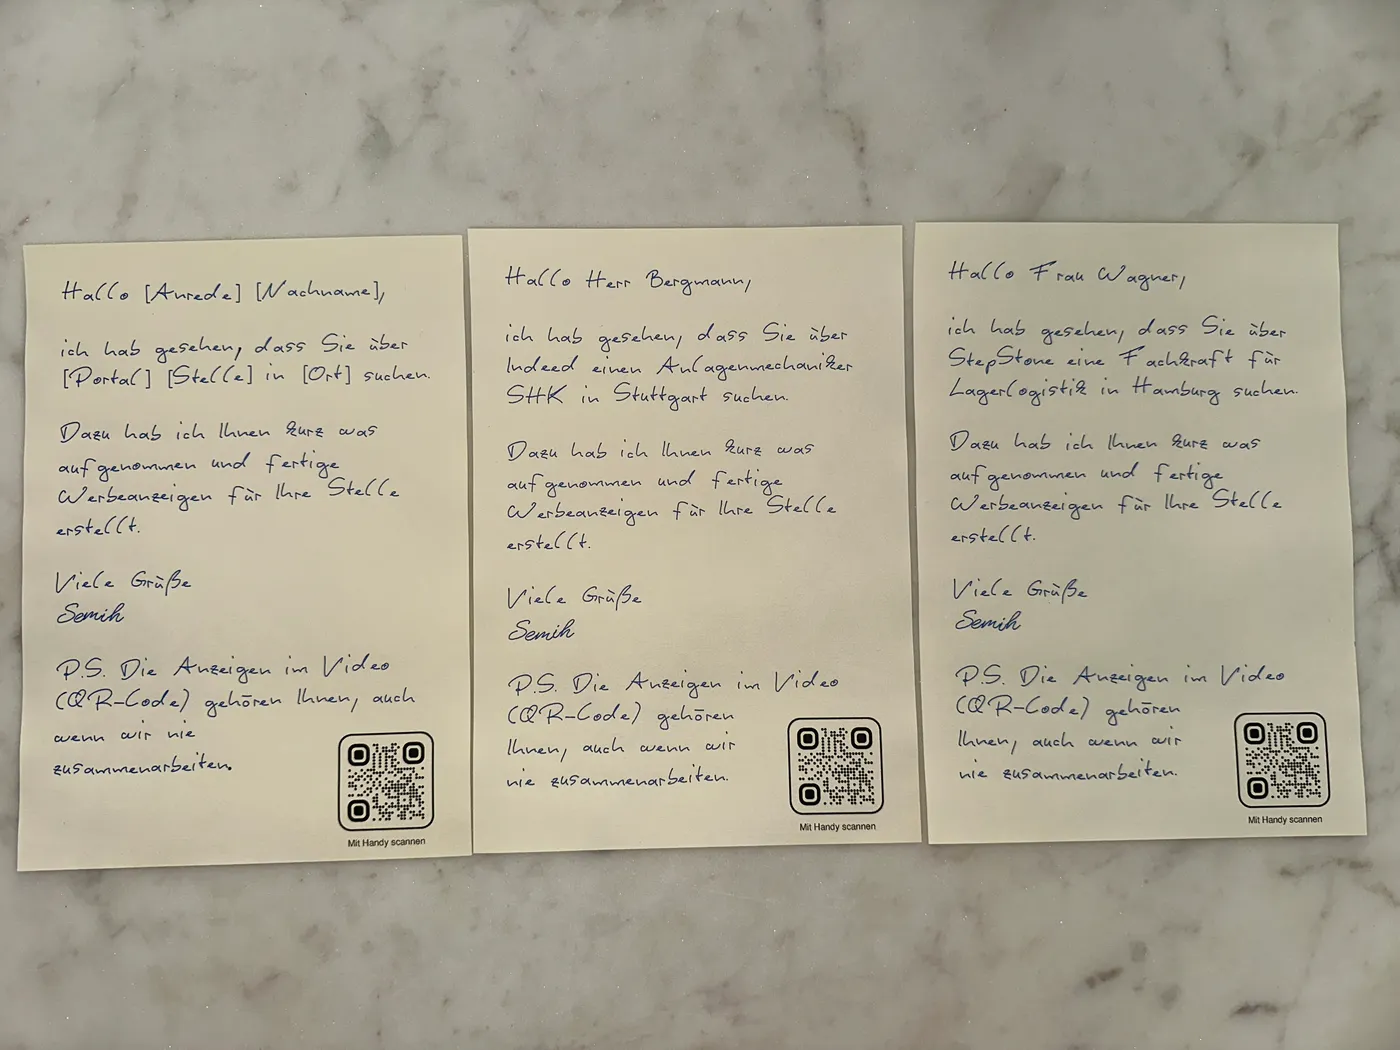 Hallo [Anrede] [Nachname],
ich hab gesehen, dass Sie über
[Portal] [Stelle] in [Ort] suchen.
Dazu hab ich Ihnen kurz was
aufgenommen und fertige
Werbeanzeigen für Ihre Stelle
erstellt.
Viele Grüße
Semih
P.S. Die Anzeigen im Video
(QR-Code) gehören Ihnen, auch
wenn wir nie
zusammenarbeiten.
Mit Handy scannen
Hallo Herr Bergmann,
ich hab gesehen, dass Sie über
Indeed einen Anlagenmechaniker
SHK in Stuttgart suchen.
Dazu hab ich Ihnen kurz was
aufgenommen und fertige
Werbeanzeigen für Ihre Stelle
erstellt.
Viele Grüße
Semih
P.S. Die Anzeigen im Video
(QR-Code) gehören
Ihnen, auch wenn wir
nie zusammenarbeiten.
Mit Handy scannen
Hallo Frau Wagner,
ich hab gesehen, dass Sie über
StepStone eine Fachkraft für
Lagerlogistik in Hamburg suchen.
Dazu hab ich Ihnen kurz was
aufgenommen und fertige
Werbeanzeigen für Ihre Stelle
erstellt.
Viele Grüße
Semih
P.S. Die Anzeigen im Video
(QR-Code) gehören
Ihnen, auch wenn wir
nie zusammenarbeiten.
Mit Handy scannen